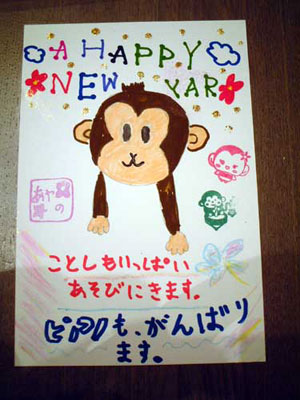 A HAPPY
NEW YAR
あやの
ことしもいっぱい
あそびにきます。
ピアノも、がんばり
ます。